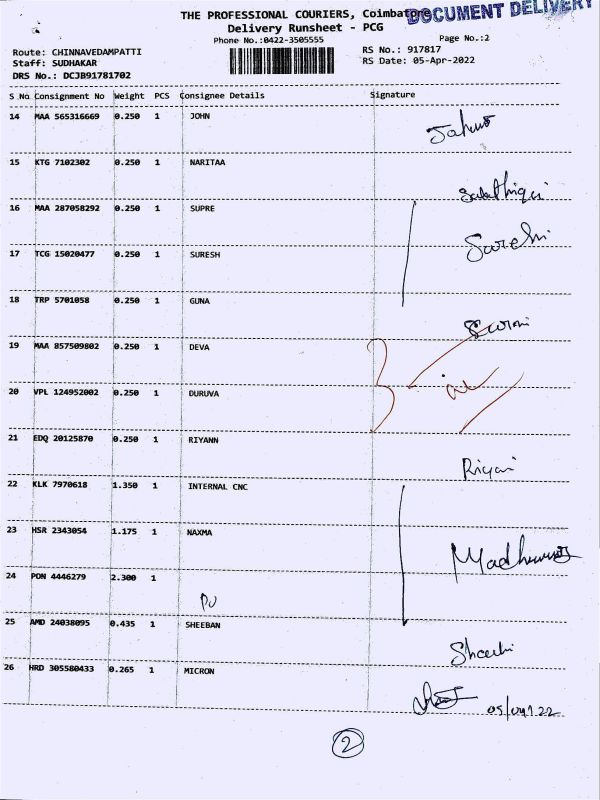 THE PROFESSIONAL COURIERS, Coimbatore
DOCUMENT DELIVERY
Delivery Runsheet - PCG
Phone No.:0422-3505555
Page No.:2
Route: CHINNAVEDAMPATTI
RS No.: 917817
Staff: SUDHAKAR
RS Date: 05-Apr-2022
DRS No.: DCJB91781702
S No Consignment No Weight PCS Consignee Details Signature
14 MAA 565316669 0.250 1 JOHN
15 KTG 7102302 0.250 1 NARITAA
16 MAA 287058292 0.250 1 SUPRE
17 TCG 15020477 0.250 1 SURESH
18 TRP 5701058 0.250 1 GUNA
19 MAA 857509802 0.250 1 DEVA
20 VPL 124952002 0.250 1 DURUVA
21 EDQ 20125870 0.250 1 RIYANN
22 KLK 7970618 1.350 1 INTERNAL CNC
23 HSR 2343054 1.175 1 NAXMA
24 PON 4446279 2.300 1
25 AMD 24038095 0.435 1 SHEEBAN
26 HRD 305580433 0.265 1 MICRON
2